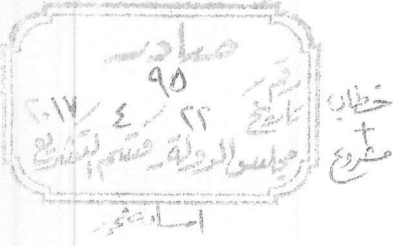 صادر
رقم ٩٥
تاريخ ٢٢ / ٤ / ٢٠١٧
مجلس الدولة - قسم التشريع
خطاب
+
مشروع